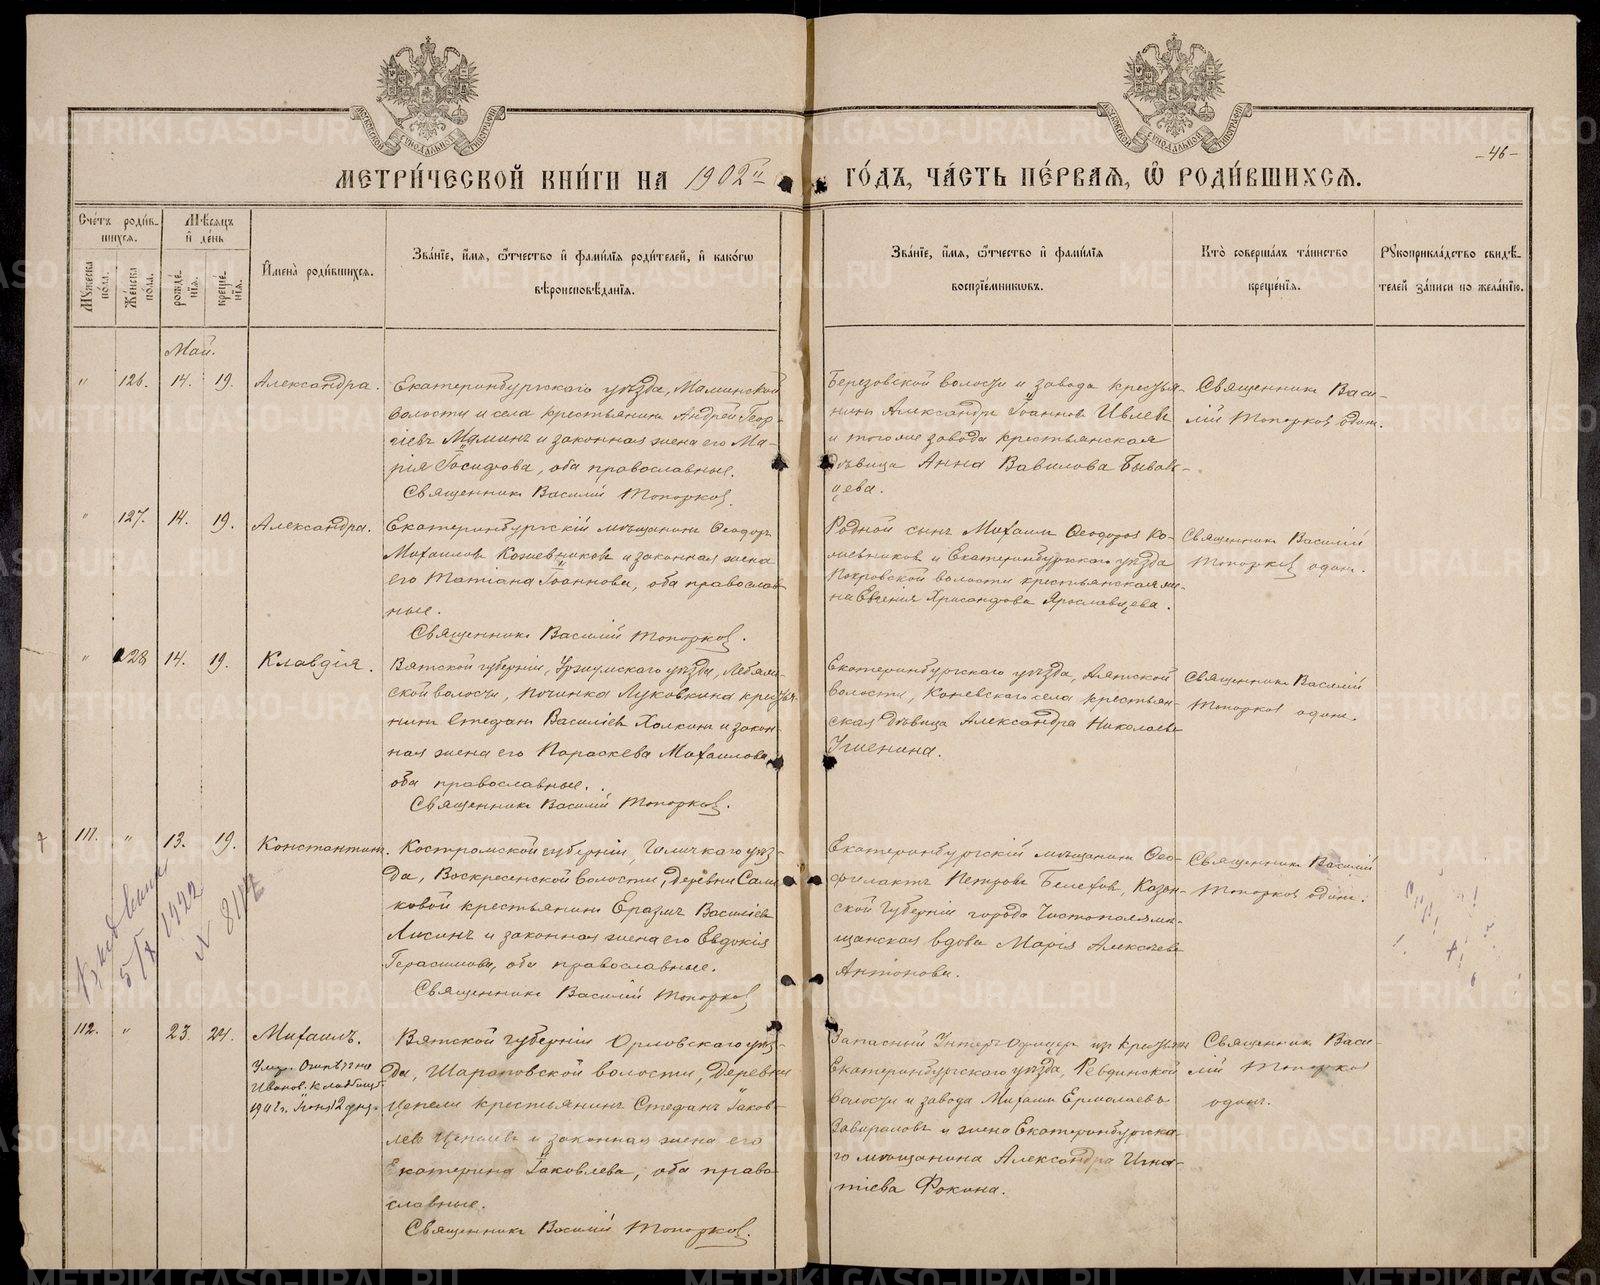 МЕТРИ́ЧЕСКОЙ КНИ́ГИ НА 1902й ГО́ДЪ, ЧА́СТЬ ПЕ́РВАЯ, Ѡ РОДИ́ВШИХСЯ.
-46-
Сче́тъ роди́в-
шихся.
Му́жеска по́ла.
Же́нска по́ла.
Мѣ́сяцъ
и де́нь
рожде́-
нія.
креще́-
нія.
Имена̀ роди́вшихся.
Зва́ніе, имя, ѻ҆́тчество и фами́лія роди́телей, и како́гѡ
вѣроисповѣ́данія.
Зва́ніе, имя, ѻ҆́тчество и фами́лія
воспріе́мникѡвъ.
Кто̀ соверша́лъ та́инство
креще́нія.
Рукоприкла́дство свидѣ́-
телей за́писи по жела́нію.
Май.
" 126. 14. 19. Александра.
Екатеринбургскаго уѣзда, Маминской
волости и села крестьянинъ Андрей Геор-
гіевъ Маминъ и законная жена его Ма-
рія Іосифова, оба православные.
Священникъ Василій Топорковъ.
Березовской волости и завода крестья-
нинъ Александръ Іоанновъ Ивлевъ
и того же завода крестьянская
дѣвица Анна Вавилова Бывал-
цева.
Священникъ Васи-
лій Топорковъ одинъ.
" 127. 14. 19. Александра.
Екатеринбургскій мѣщанинъ Ѳеодоръ
Михаиловъ Кожевниковъ и законная жена
его Татіана Іоаннова, оба православ-
ные.
Священникъ Василій Топорковъ.
Родной сынъ Михаилъ Ѳеодоровъ Ко-
жевниковъ и Екатеринбургскаго уѣзда
Покровской волости крестьянская же-
на Евгенія Хрисанфова Ярославцева.
Священникъ Василій
Топорковъ одинъ.
" 128 14. 19. Клавдія.
Вятской губерніи, Уржумскаго уѣзда, Лебяж-
ской волости, починка Луковкина крестья-
нинъ Стефанъ Василіевъ Халкинъ и закон-
ная жена его Параскева Михаилова,
оба православные.
Священникъ Василій Топорковъ.
Екатеринбургскаго уѣзда,
волости, Коневскаго села крестьян-
ская дѣвица Александра Николаева
Священникъ Василій
Топорковъ одинъ.
111. " 13. 19. Константинъ.
Костромской губерніи, Галичкаго уѣз-
да, Воскресенской волости, деревни Сали-
ковой крестьянинъ Еразмъ Василіевъ
Лисинъ и законная жена его Евдокія
Герасимова, оба православные.
Священникъ Василій Топорковъ
Екатеринбургскій мѣщанинъ Ѳео-
филактъ Петровъ Белеховъ, Казан-
ской губерніи города Чистополя мѣ-
щанская вдова Марія Алексѣева
Антонова.
Священникъ Василій
Топорковъ одинъ.
5/IX 1922
N
112. " 23. 24. Михаилъ.
Умеръ.
Иванов. кладбищѣ
Вятской губерніи Орловскаго уѣз-
да, Шараповской волости, деревни
Цепели крестьянинъ Стефанъ Іаков-
левъ Цепелевъ и законная жена его
Екатерина Іаковлева, оба право-
славные.
Священникъ Василій Топорковъ.
Запасный Унтеръ-Офицеръ изъ крестьянъ
Екатеринбургскаго уѣзда, Ревдинской
волости и завода Михаилъ Ермолаевъ
и жена Екатеринбургска-
го мѣщанина Александра Игна-
тіева Фокина.
Священникъ Васи-
лій Топорковъ
одинъ.
METRIKI.GASO-URAL.RU